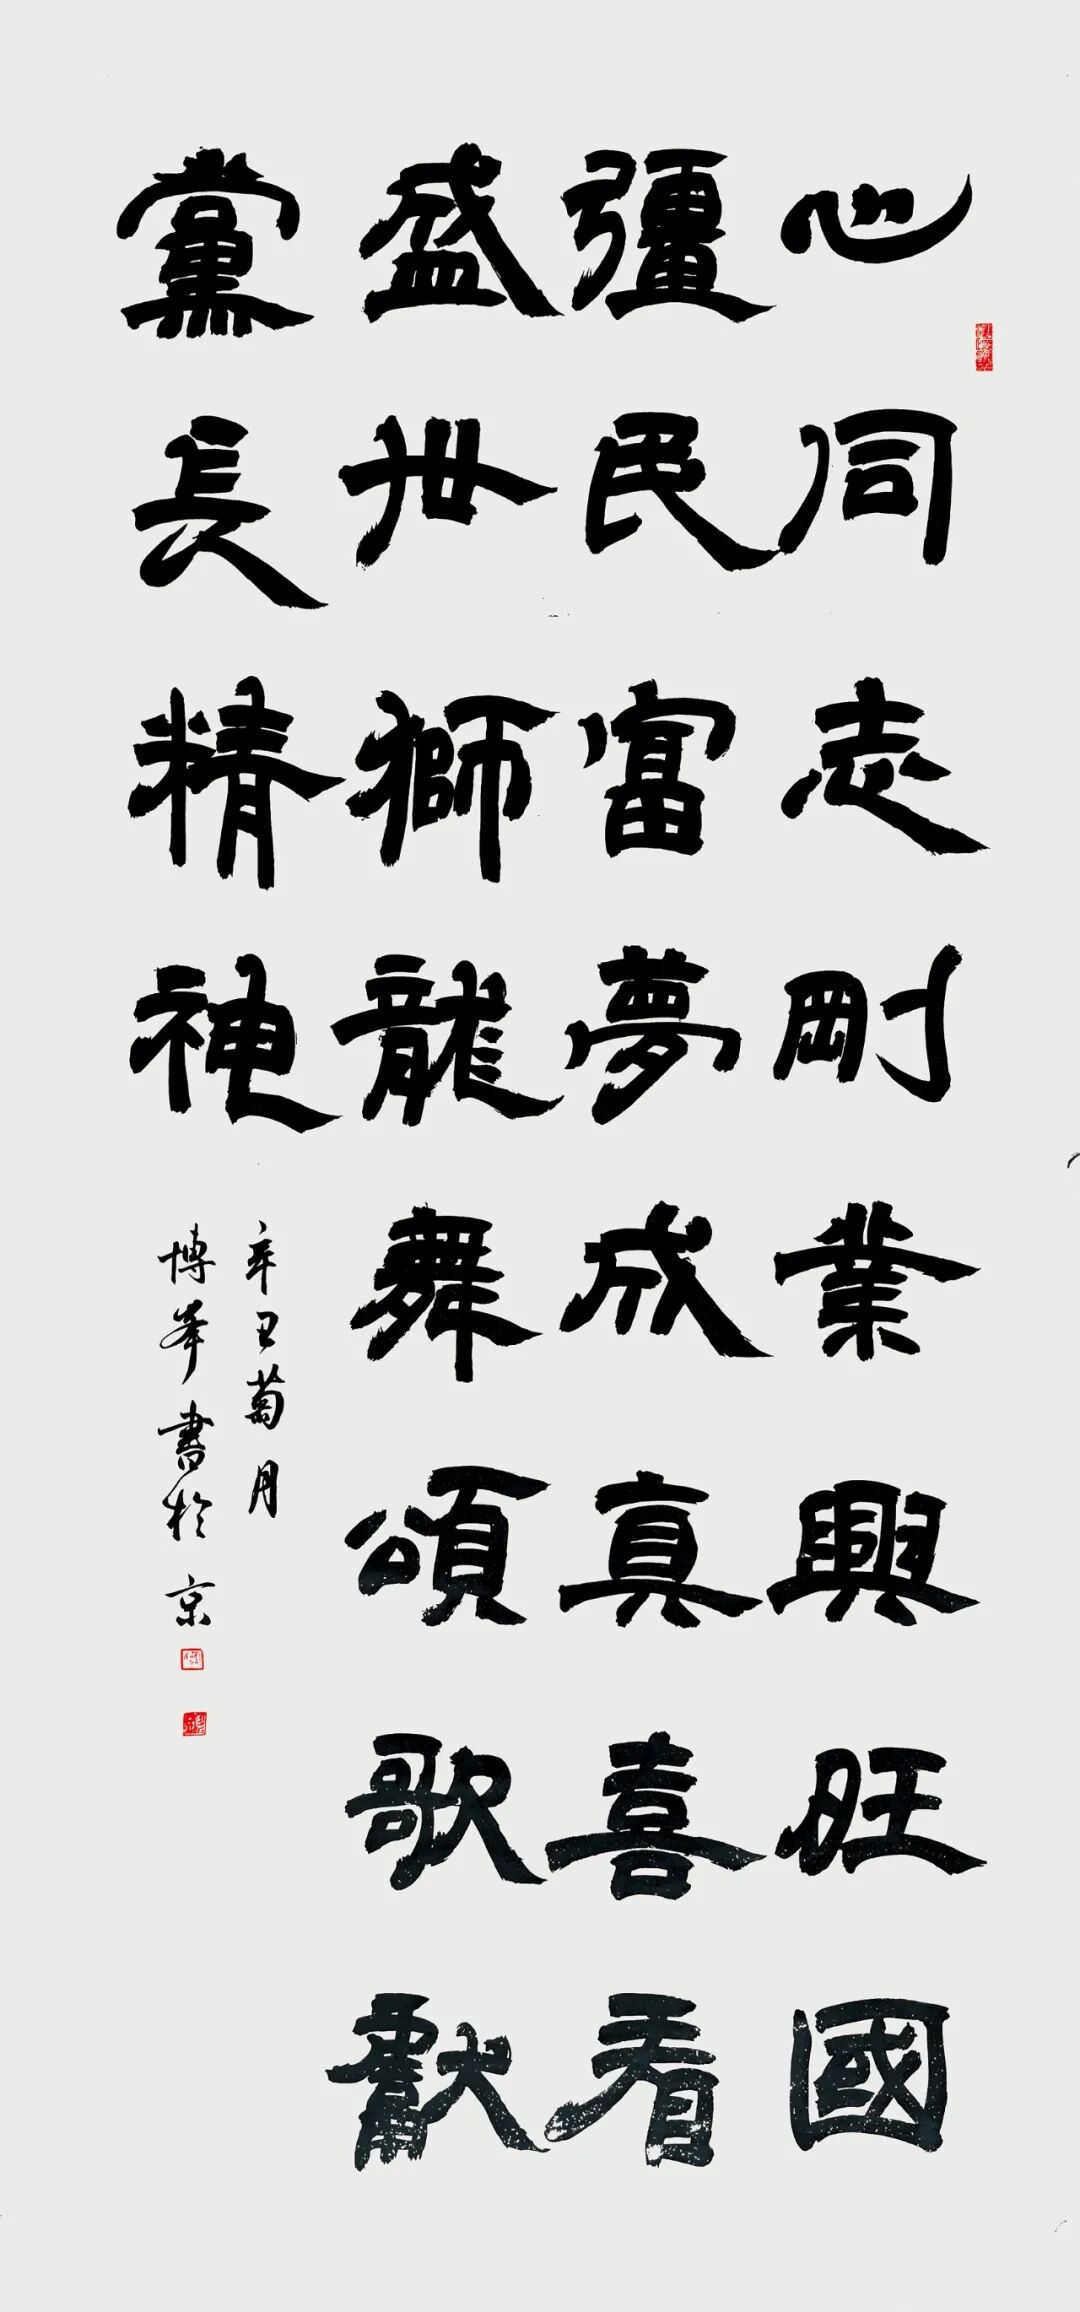 心同志剛業興旺國
彊民富夢成真喜看
盛世獅龍舞頌歌獻
黨長精神
辛丑菊月
博峯書於京